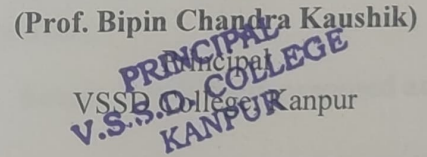 (Prof. Bipin Chandra Kaushik)
Principal
VSSD College, Kanpur
PRINCIPAL
V.S.S.D. COLLEGE
KANPUR